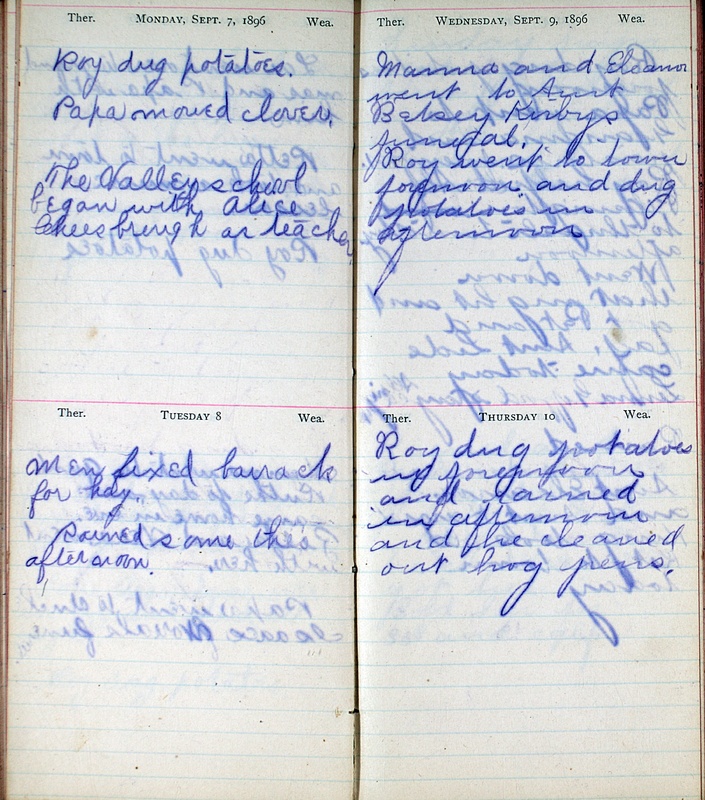 Ther. MONDAY, SEPT. 7, 1896 Wea.
Roy dug potatoes.
Papa mowed clover.
The Valley school
began with Alice
Cheesbrough as teacher
Ther. TUESDAY 8 Wea.
Men fixed barrack
for hay.
Rained some this
afternoon.
Ther. WEDNESDAY, SEPT. 9, 1896 Wea.
Mamma and Eleanor
went to Aunt
Betsey Kirbys
funeral.
Roy went to town
forenoon and dug
potatoes in
afternoon
Ther. THURSDAY 10 Wea.
Roy dug potatoes
in forenoon
and rained
in afternoon
and he cleaned
out hog pens.